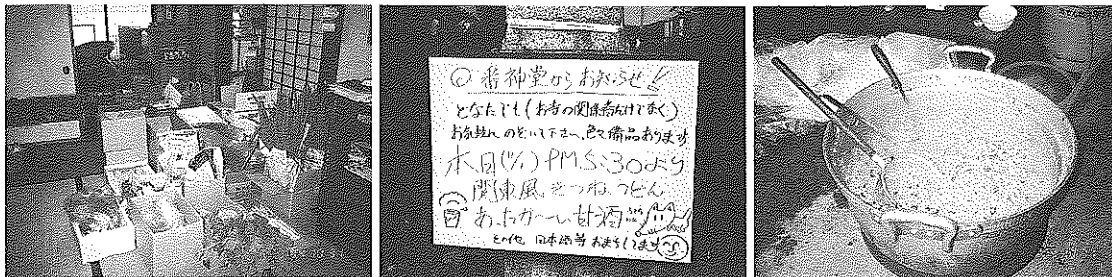 ◎番神堂からお知らせ!!
どなたでも(お寺の関係者だけでなく)
お気軽にのぞいて下さい、色々備品あります
本日(1/1)PM5:30より
関東風きつねうどん
あったかーい甘酒
その他 日本酒等 お待ちしてます